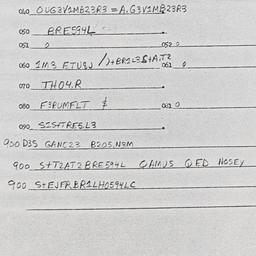 040 OUG3V1MB23R3 = A.G3V1MB23R3
050 BRE594L
051 0 052 0
060 1M3 ETUSJ /)+BR1L3S+A.T2 061 0
070 THO4.R
080 F3RUMFLT $ 081 0
090 S1S+TRES.L3
900 D35 GANC23 B205.N3M
900 S+T2AT2BRE594L QAMUS QED NOSEY
900 S+EJFR.BR1LHO594LC